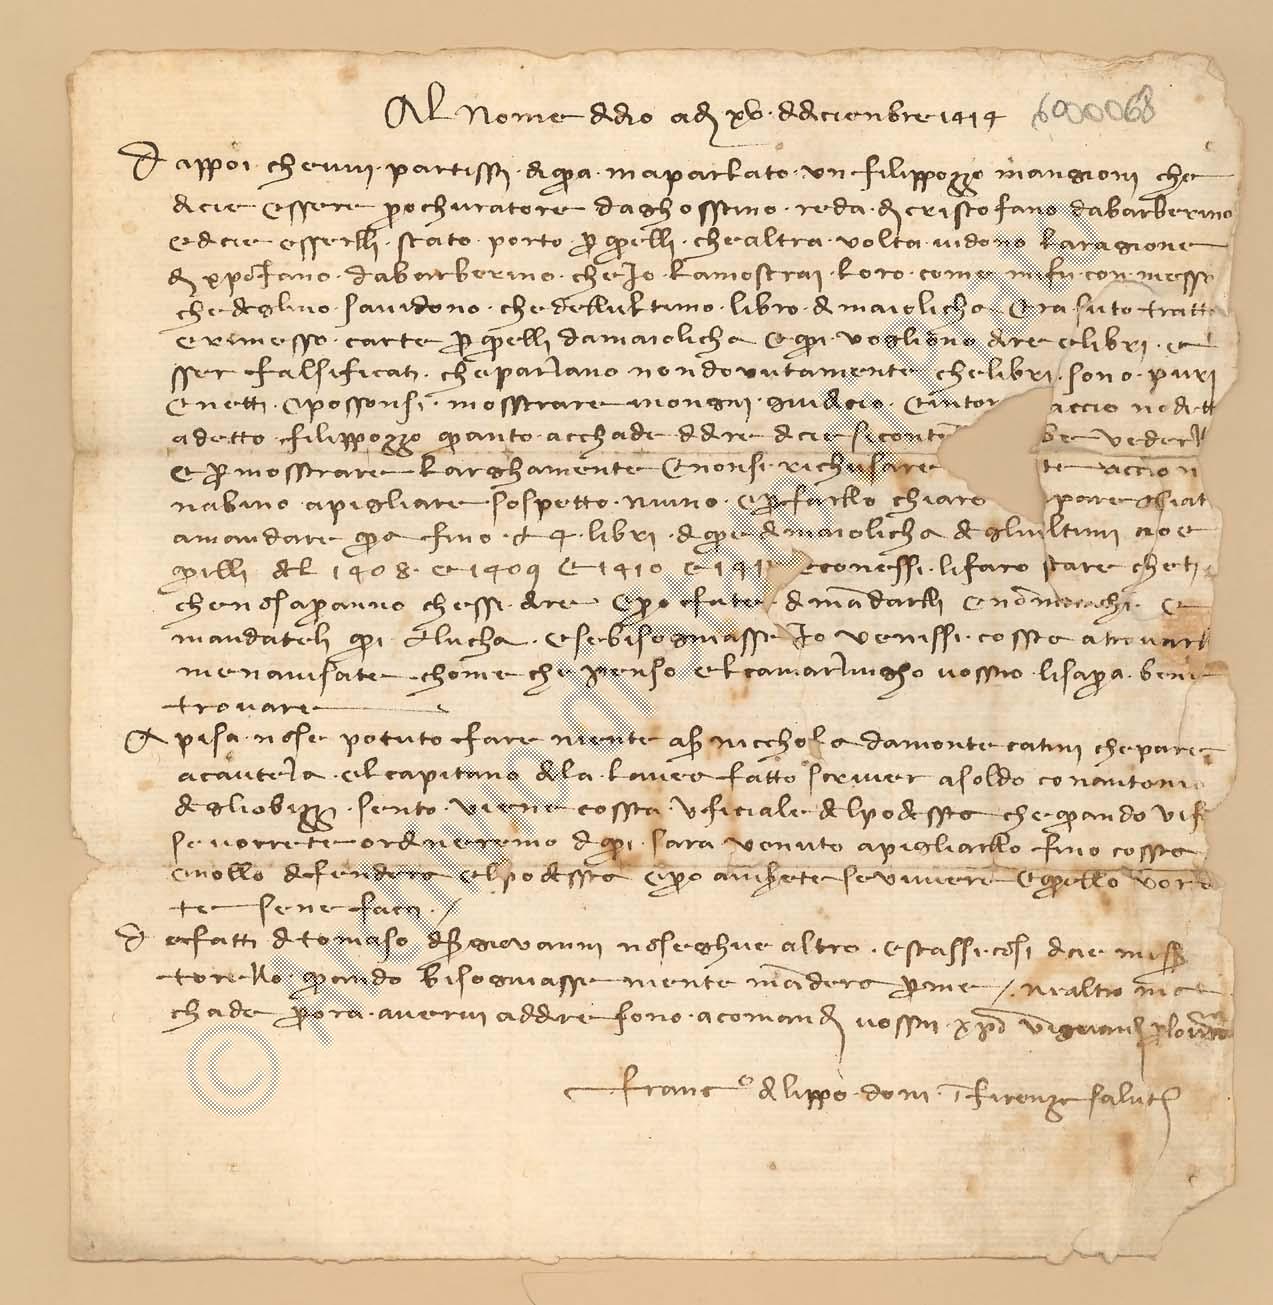 Al Nome ddio adj xv ddicienbre 1414 6000068
Dappoi chevui partissti diqua maparlato un filippozzo mangioni che
dicie essere prochuratore daghosstino reda di cristofano dabarberino
edicie esserlli stato porto per quelli che altra volta vidono laragione
di xpofano dabarberino che Jo lamostrai loro come mifu conmesso
che deglino savidono che dellultimo libro di maiolicha era suto tratto
erimesso carte per quelli damaiolicha e qui vogliono dire elibri e
sser falsificati cheparlano nondovutamente che libri sono puri
e netti e possonsi mosstrare inongni giudicio e intor accio nodett
adetto filippozzo quanto acchade ddire dicie sicont be veder
e per mosstrare larghamente e nonsi richusare te accion
nabino apigliare sospetto niuno e per farllo chiaro pare ghiat
amandare qua fino a 4 libri di que di maiolicha degliultimi cioe
quelli del 1408 e 1409 e 1410 e 141 e conessi lifaro stare cheti
che nosapranno chessi dire e pero fate di mandarlli e
mandateli qui allucha e sebisogniasse Jo venissi cossta atrovarl
menavisate chome che penso elcamarlingho vosstro lisapra bene
trovare
A pisa nose potuto fare niente a ser nicchola damonte catini che pare
acautela el capitano dela lavea fatto scriver asoldo conantonio
degliobizzi sento viene cossta uficiale delpodessta che quando vi
se vorrete ordineremo di qui sara venuto apigliarllo fino cossta
enollo difendera elpodessta e pero aviserete sevivere e quello vor
te sene faci
D efatti di tomaso di ser giovanni nose ghue altro estassi cosi dicie miser
torello quando bisogniasse niente mandera per me ne altro mac
chade per ora avervi addire sono acomandi vosstri xpo vi guardi per lo
franco di lippo doni in firenze salute